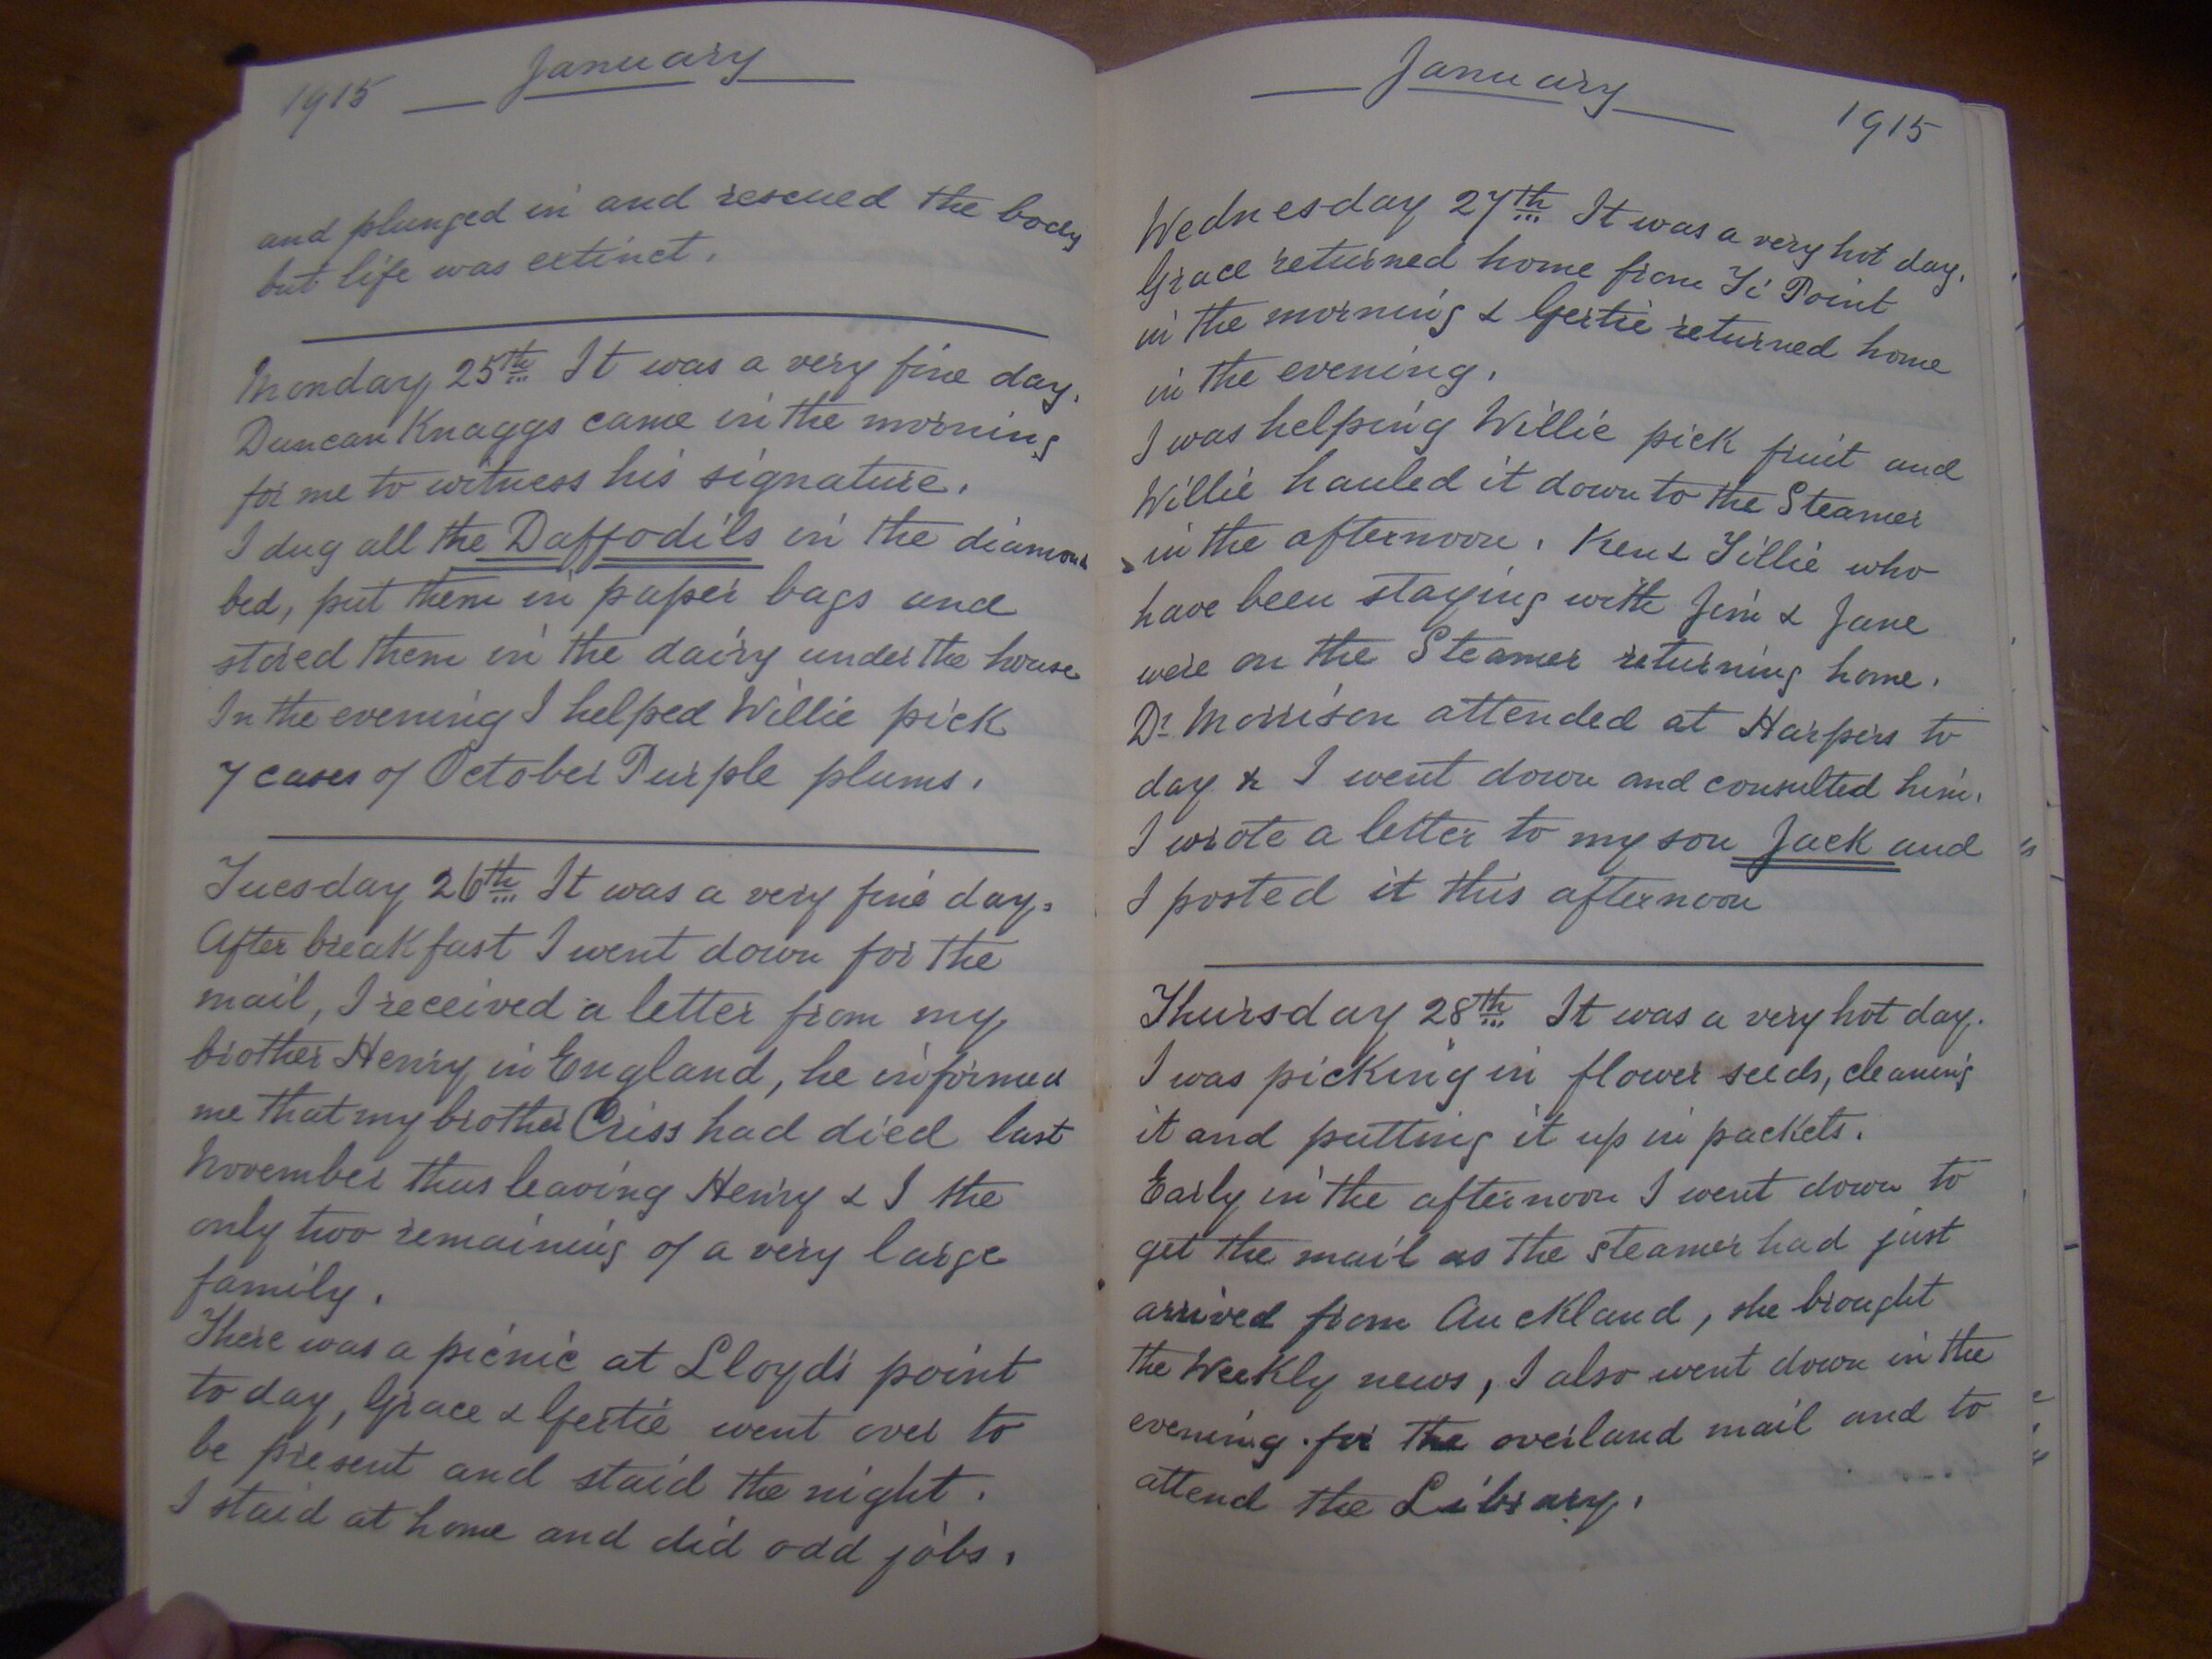 1915 January
and plunged in and rescued the body
but life was extinct.
Monday 25th It was a very fine day.
Duncan Knaggs came in the morning
for me to witness his signature.
I dug all the Daffodils in the diamond
bed, put them in paper bags and
stored them in the dairy under the house
In the evening I helped Willie pick
7 cases of October Purple plums.
Tuesday 26th It was a very fine day.
After breakfast I went down for the
mail, I received a letter from my
brother Henry in England, he informed
me that my brother Criss had died last
November thus leaving Henry & I the
only two remaining of a very large
family.
There was a picnic at Lloyds point
to day, Grace & Gertie went over to
be present and staid the night.
I staid at home and did odd jobs.
January 1915
Wednesday 27th It was a very hot day.
Grace returned home from Ti Point
in the morning & Gertie returned home
in the evening.
I was helping Willie pick fruit and
Willie hauled it down to the Steamer
in the afternoon. Ken & Tillie who
have been staying with Jim & Jane
were on the Steamer returning home.
Dr Morrison attended at Harpers to
day & I went down and consulted him.
I wrote a letter to my son Jack and
I posted it this afternoon
Thursday 28th It was a very hot day.
I was picking in flower seeds, cleaning
it and putting it up in packets.
Early in the afternoon I went down to
get the mail as the steamer had just
arrived from Auckland, she brought
the Weekly news, I also went down in the
evening for the overland mail and to
attend the Library.